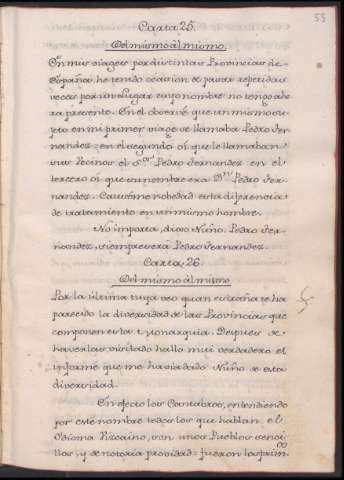 53
Carta 25.
Del mismo al mismo.
En mis viages por distintas Provincias de
España, he tenido ocasion de pasar repetidas
veces por un lugar cuyo nombre no tengo aho
ra presente. En el observé que un mismo su
jeto en mi primer viage se llamaba Pedro Fer
nandez; en el segundo oí que le llamaban
sus Vecinos el S.or Pedro Fernandez en el
tercero oí que su nombre era D.n Pedro Fer
nandez. Causóme nobedad esta diferencia
de tratamiento en un mismo hombre.
No importa, dijo Nuño. Pedro Fer
nandez, siempre será Pedro Fernandez.
Carta 26.
Del mismo al mismo
Por la ultima tuya veo quan estraña te ha
parecido la diversidad de las Provincias que
componen esta Monarquia. Despues de
haverlas visitado hallo mui verdadero el
informe que me havia dado Nuño de esta
diversidad.
En efecto los Cantabros, entendiendo
por este nombre todos los que hablan el
Ydioma Vizcaino, son unos Pueblos senci
llos, y de notoria probidad: fueron los prim.os